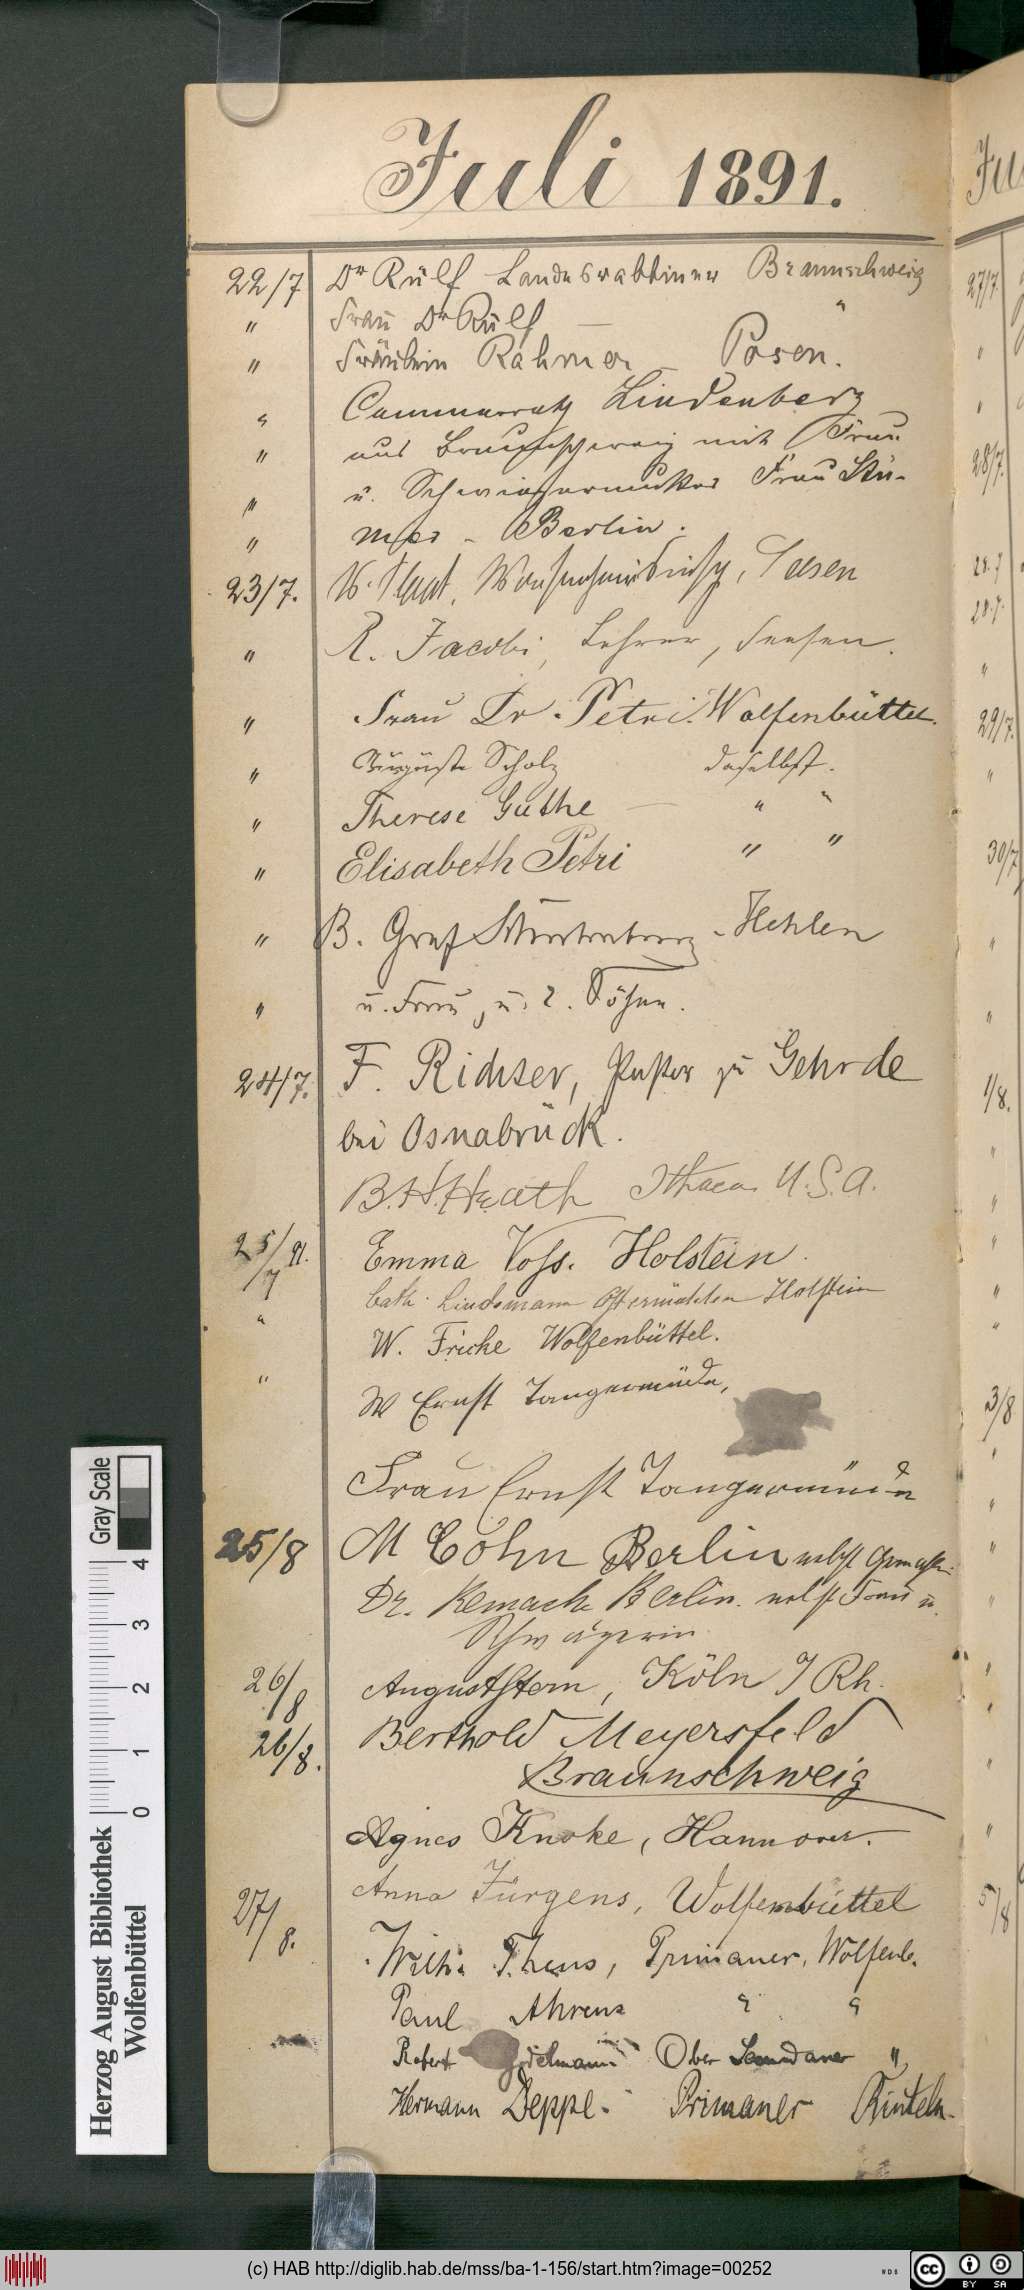 Juli 1891.
22/7 Dr Rülf Landesrabbiner Braunschweig
" Frau Dr Rülf — "
" Fräulein Rahmer Posen.
" Commerzrath Lindenberg
" aus Braunschweig mit Frau
" u. Schwiegermutter Frau Stü-
" mer - Berlin.
23/7. W. Seesen
" R. Jacobi, Lehrer, Seesen.
" Frau Dr. Petri. Wolfenbüttel.
" Auguste Scholz daselbst.
" Therese Guthe — " "
" Elisabeth Petri " "
" B. Graf - Hehlen
" u. Frau, u. 2. Söhne.
24/7. F. Richter, Pastor zu Gehrde
bei Osnabrück.
B. H. Heath Ithaca U.S.A.
25/7 91. Emma Voss. Holstein.
" Cath. Lindemann Holstein
" W. Fricke Wolfenbüttel.
W Ernst Tangermünde,
Frau Ernst Tangermünde
25/8 M Cohn Berlin nebst
Dr. Remack Berlin. nebst Frau u.
Schwägerin
26/8 August Stern, Köln a/Rh.
26/8. Berthold Meyersfeld
Braunschweig
Agnes Knoke, Hannover.
Anna Jürgens, Wolfenbüttel
27/8. Wilh. Thens, Primaner, Wolfenb.
Paul Ahrens " "
Robert Ober Secundaner "
Hermann Deppe. Primaner Rinteln.
Ju
27/7.
"
"
28/7.
28.7
28.7.
"
29/7.
"
30/7
"
"
1/8.
"
"
"
"
"
3/8
"
"
"
"
"
"
"
"
5/8
Gray Scale
0 1 2 3 4
Herzog August Bibliothek
Wolfenbüttel
(c) HAB http://diglib.hab.de/mss/ba-1-156/start.htm?image=00252
WDB
cc BY SA